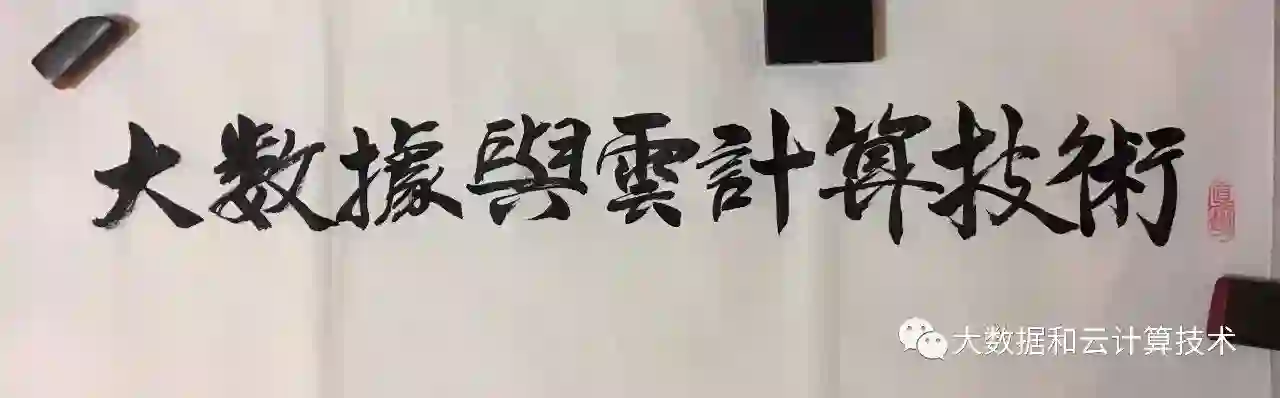 大数據與雲計算技術
大数据和云计算技术